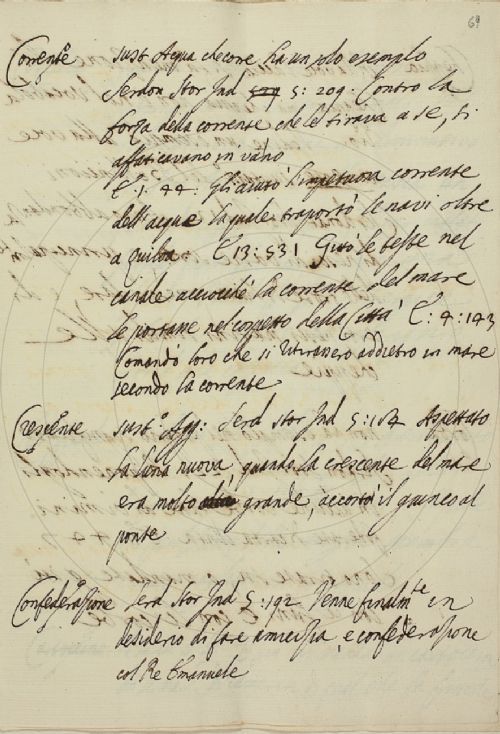 69
Corrente sust Acqua che core ha un solo esempio
Serdon Stor Ind 5: 209. Contro la
forza della corrente che le tirava a se, si
affaticavano in vano
E 1: 44: gli aiutò l'impetuosa corrente
dell'acque la quale traportò le navi oltre
a Quiloa E 13: 531 Gittò le teste nel
canale acciochè la corrente del mare
le portasse nel cospetto della Città E: 4: 143
Comandò loro che si ritirassero addietro in mare
secondo la corrente
Crescente sust.o Agg: Serd Stor Ind 5: 184 Aspettato
la luna nuova, quando la crescente del mare
era molto grande, accostò il giunco al
ponte
Confederazione Serd Stor Ind 5: 192 Venne finalm.te in
desiderio di fare amicizia, e confederazione
col Re Emanuele